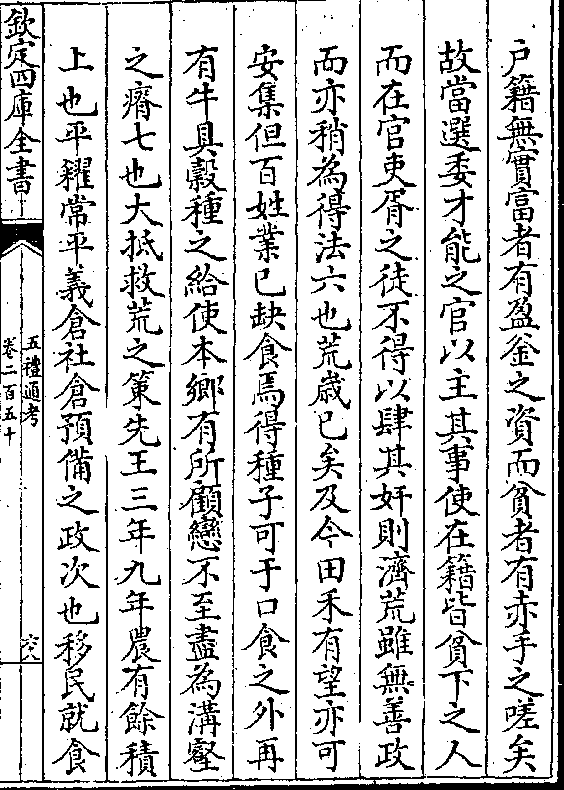 戸籍無實富者有盈釜之資而貧者有赤手之嗟矣
故當選委才能之官以主其事使在籍皆貧下之人
而在官吏胥之徒不得以肆其奸則濟荒雖無善政
而亦稍為得法六也荒歳已矣及今田禾有望亦可
安集但百姓業已缺食焉得種子可于口食之外再
有牛具穀種之給使本鄉有所顧戀不至盡為溝壑
之瘠七也大抵救荒之策先王三年九年農有餘積
上也平糴常平義倉社倉預備之政次也移民就食
欽定四庫全書
五禮通考
卷二百五十
六八